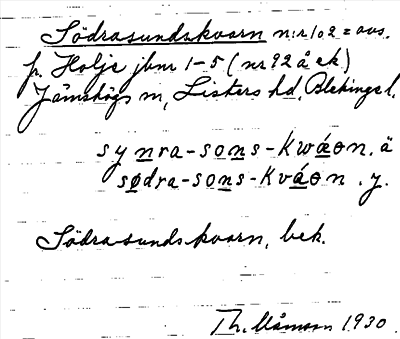 Södrasundskvarn n:r 102 = avs.
fr. Holje jbnr 1-5 (nr 92 å ek)
Jämshögs sn, Listers hd, Blekinge l.
synra-sons-kwáen. ä
sødra-sons-kváen. y.
Södrasundskvarn, bek.
Th. Månsson 1930.